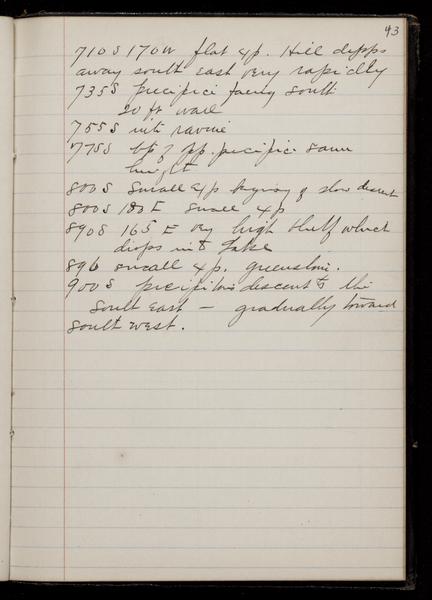 43
710 S 170 W flat xp. Hill dropps
away south east very rapidly
735 S precipice facing south
20 ft wall
755 S into ravine
775 S precipice same
height
800 S small xp begining of slow descent
800 S 180 E small xp
890 S 165 E very high bluff which
drops into lake
896 small xp. greenstone.
900 S precipitous descent to the
south east — gradually toward
south west.